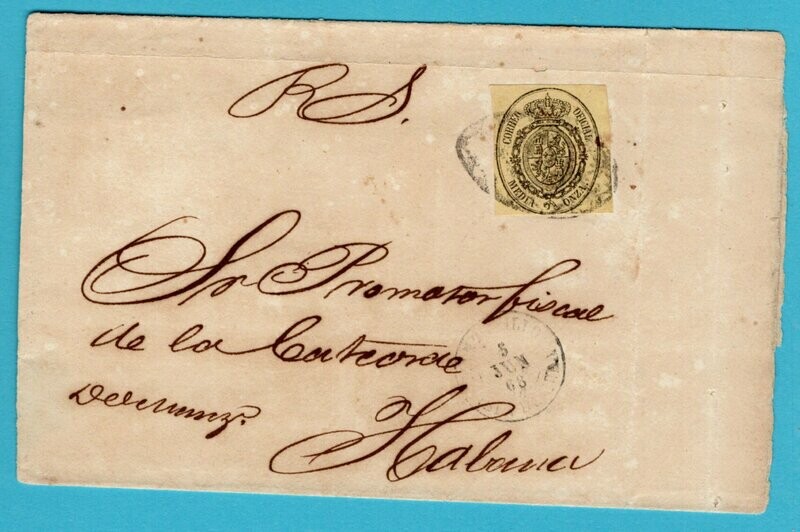 R S.
CORREO OFICIAL
MEDIA ONZA.
Sr Promotor fiscal
de la Catedral
5
JUN
68
Habana